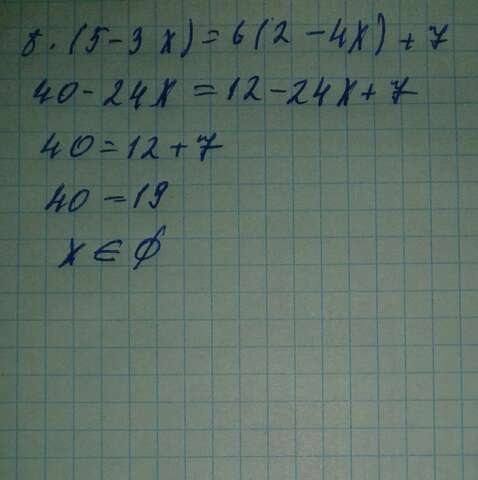 8·(5-3x)=6(2-4x)+7
40-24x=12-24x+7
40=12+7
40=19
x∈∅